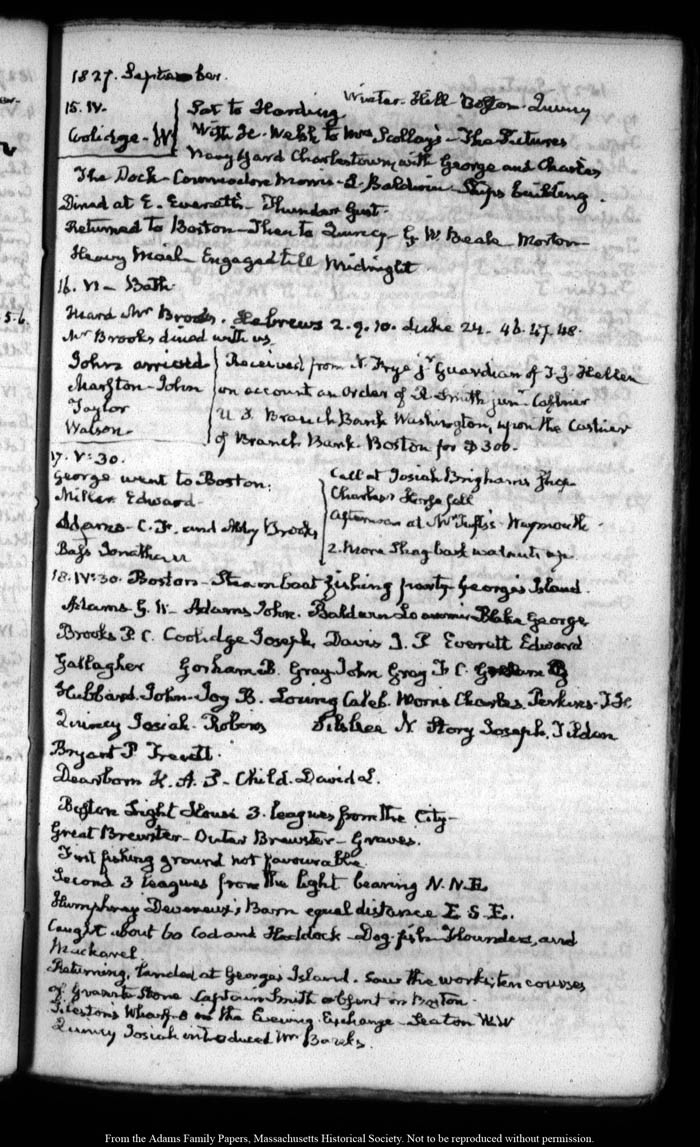 1827. September.
Winter Hill Boston Quincy
15. IV.
Coolidge - W
Sat to Harding
With H. Welsh to Mrs Scollay's - The Pictures
Navy Yard Charlestown, with George and Charles
The Dock - Commodore Morris - L. Baldwin Ships building.
Dined at E. Everett's - Thunder Gust.
Returned to Boston - Then to Quincy - G. W. Beale - Morton -
Heavy Mail - Engaged till Midnight
16. VI - Bath.
Heard Mr Brooks. Hebrews 2. 9. 10. Luke 24. 46. 47. 48.
Mr Brooks dined with us
John arrived
Marston - John
Taylor
Watson -
Received from N. Frye jr Guardian of J. J. Hellen
on account an Order of R. Smith junr Cashier
U. S. Branch Bank Washington, upon the Cashier
of Branch Bank Boston for $300.
17. V: 30.
George went to Boston.
Miller Edward -
Adams - C. F. and Abby Brooks
Bass Jonathan
Call at Josiah Brigham's Shop
Charles's Horse fell
Afternoon at Mr Tufts's - Weymouth
2. more Shagbark walnuts up.
18. IV: 30. Boston - Steam boat fishing party Georges Island.
Adams G. W - Adams John. Baldwin Loammi Blake George
Brooks P. C. Coolidge Joseph, Davis I. P Everett Edward
Gallagher Gorham B. Gray John Gray F. C.
Hubbard John - Joy B. Loring Caleb. Morris Charles, Perkins T. H
Quincy Josiah - Silsbee N Story Joseph, Tilden
Bryant P Trevett.
Dearborn H. A. S - Child. David L.
Boston Light House 3. leagues from the City -
Great Brewster - Outer Brewster - Graves.
First fishing ground not favourable
Second 3 leagues from the light bearing N. N. E.
Humphrey Devereux's Barn equal distance E S. E.
Caught about 60 Cod and Haddock - Dog-fish Flounders, and
Mackarel.
Returning, landed at Georges Island. Saw the works, ten courses
of Granite Stone Captain Smith absent in Boston.
Tileston's Wharf - 8 in the Evening. Exchange - Seaton W. W
Quincy Josiah introduced Mr
From the Adams Family Papers, Massachusetts Historical Society. Not to be reproduced without permission.